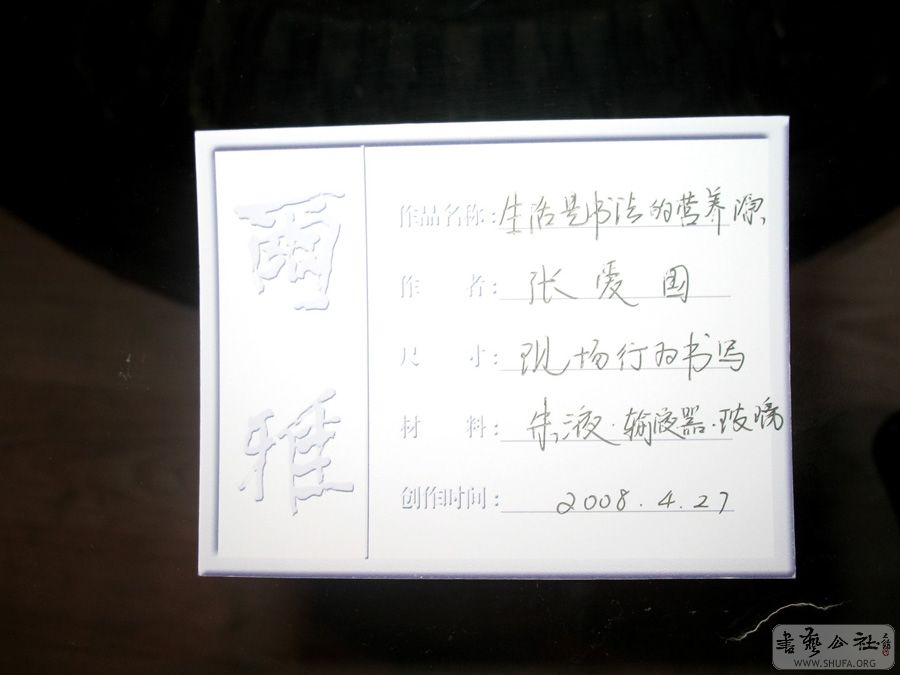 爾雅
作品名称：生活是书法的营养源
作者：张爱国
尺寸：现场行为书写
材料：朱液·输液器·玻璃
创作时间：2008.4.27
書藝公社
WWW.SHUFA.ORG